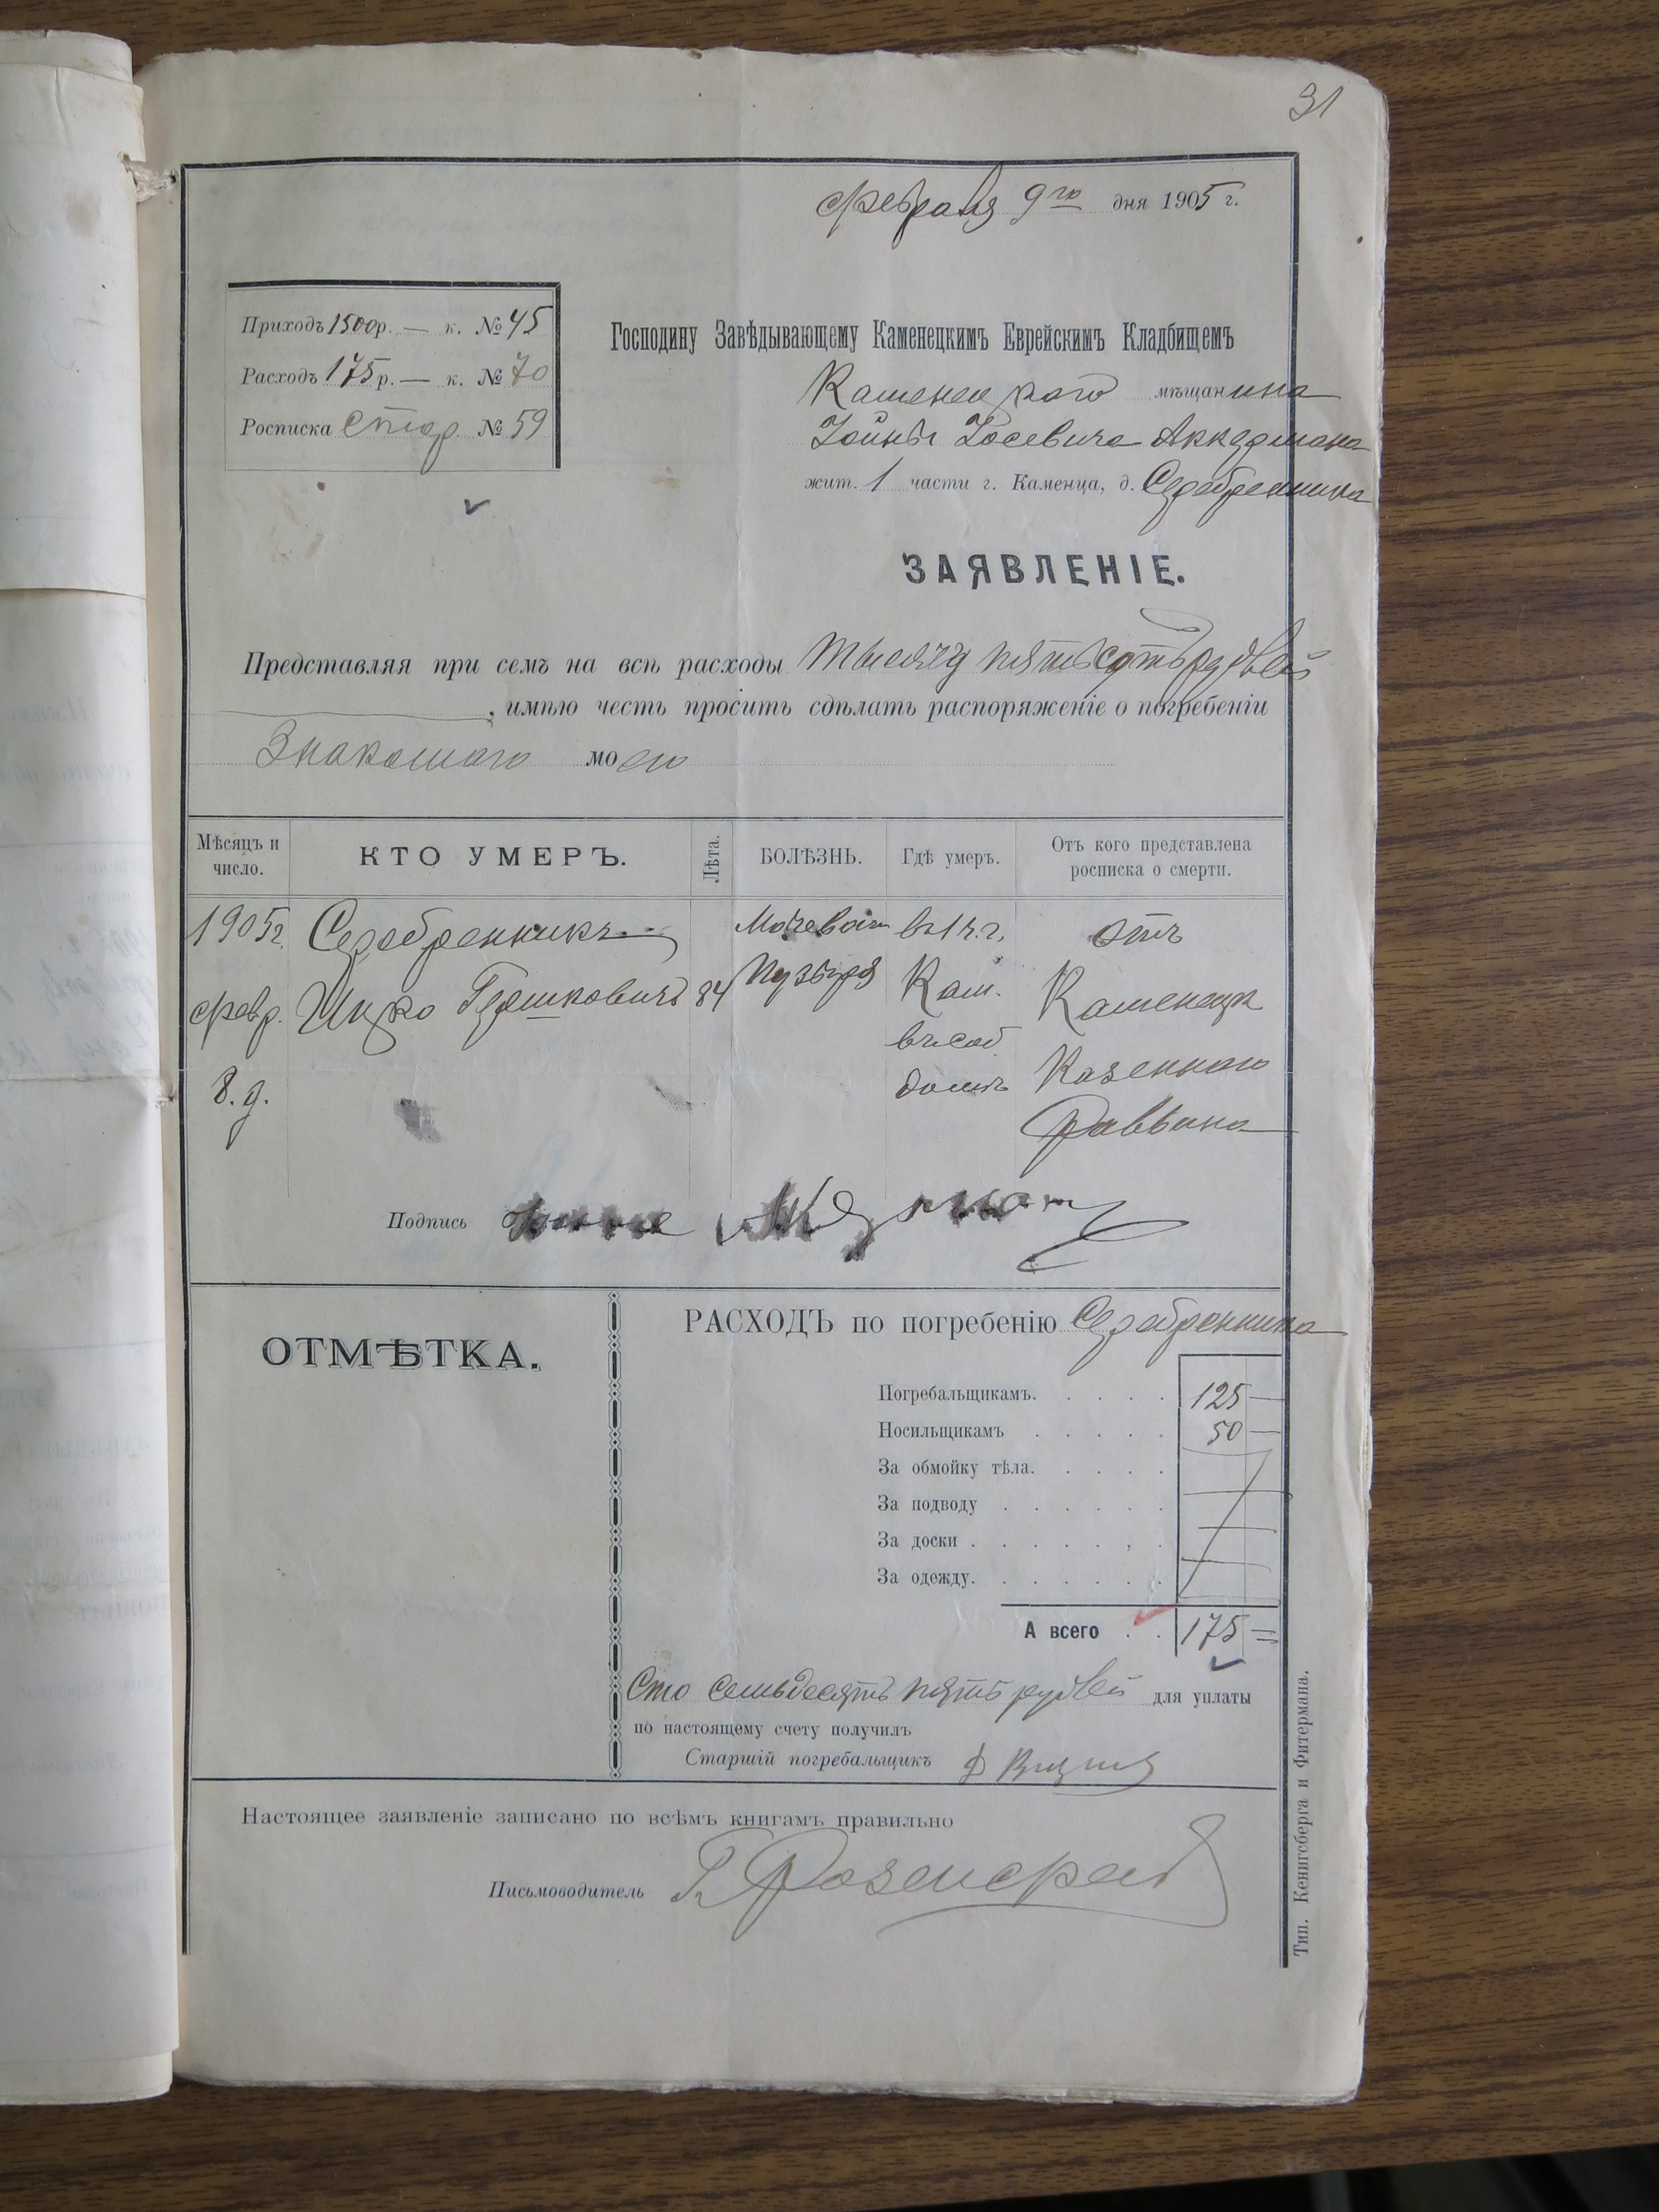 31
Февраля 9го дня 1905 г.
Приходъ 1500 р. — к. № 45
Расходъ 175 р. — к. № 70
Росписка стар. № 59
Господину Завѣдывающему Каменецкимъ Еврейскимъ Кладбищемъ
Каменецкого мѣщанина
Іойны Іосевича Аккермана
жит. 1 части г. Каменца, д. Серебренника
ЗАЯВЛЕНІЕ.
Представляя при семъ на всѣ расходы тысячу пятьсотъ рублей
, имѣю честь просить сдѣлать распоряженіе о погребеніи
Знакомаго моего
Мѣсяцъ и число. КТО УМЕРЪ. Лѣта. БОЛѢЗНЬ. Гдѣ умеръ. Отъ кого представлена росписка о смерти.
1905 г. Серебренникъ Мочевой въ 1 ч. г. отъ
февр. Ицко Гершковичъ 84 пузыря Кам. Каменецк
въ соб домѣ Казенного
8. д. Раввина
Подпись
ОТМѢТКА.
РАСХОДЪ по погребенію Серебренника
Погребальщикамъ. 125 —
Носильщикамъ 50 —
За обмойку тѣла.
За подводу
За доски
За одежду.
А всего 175 =
Сто семьдесятъ пять рублей для уплаты
по настоящему счету получилъ
Старшій погребальщикъ
Настоящее заявленіе записано по всѣмъ книгамъ правильно
Письмоводитель
Тип. Кенигсберга и Фитермана.